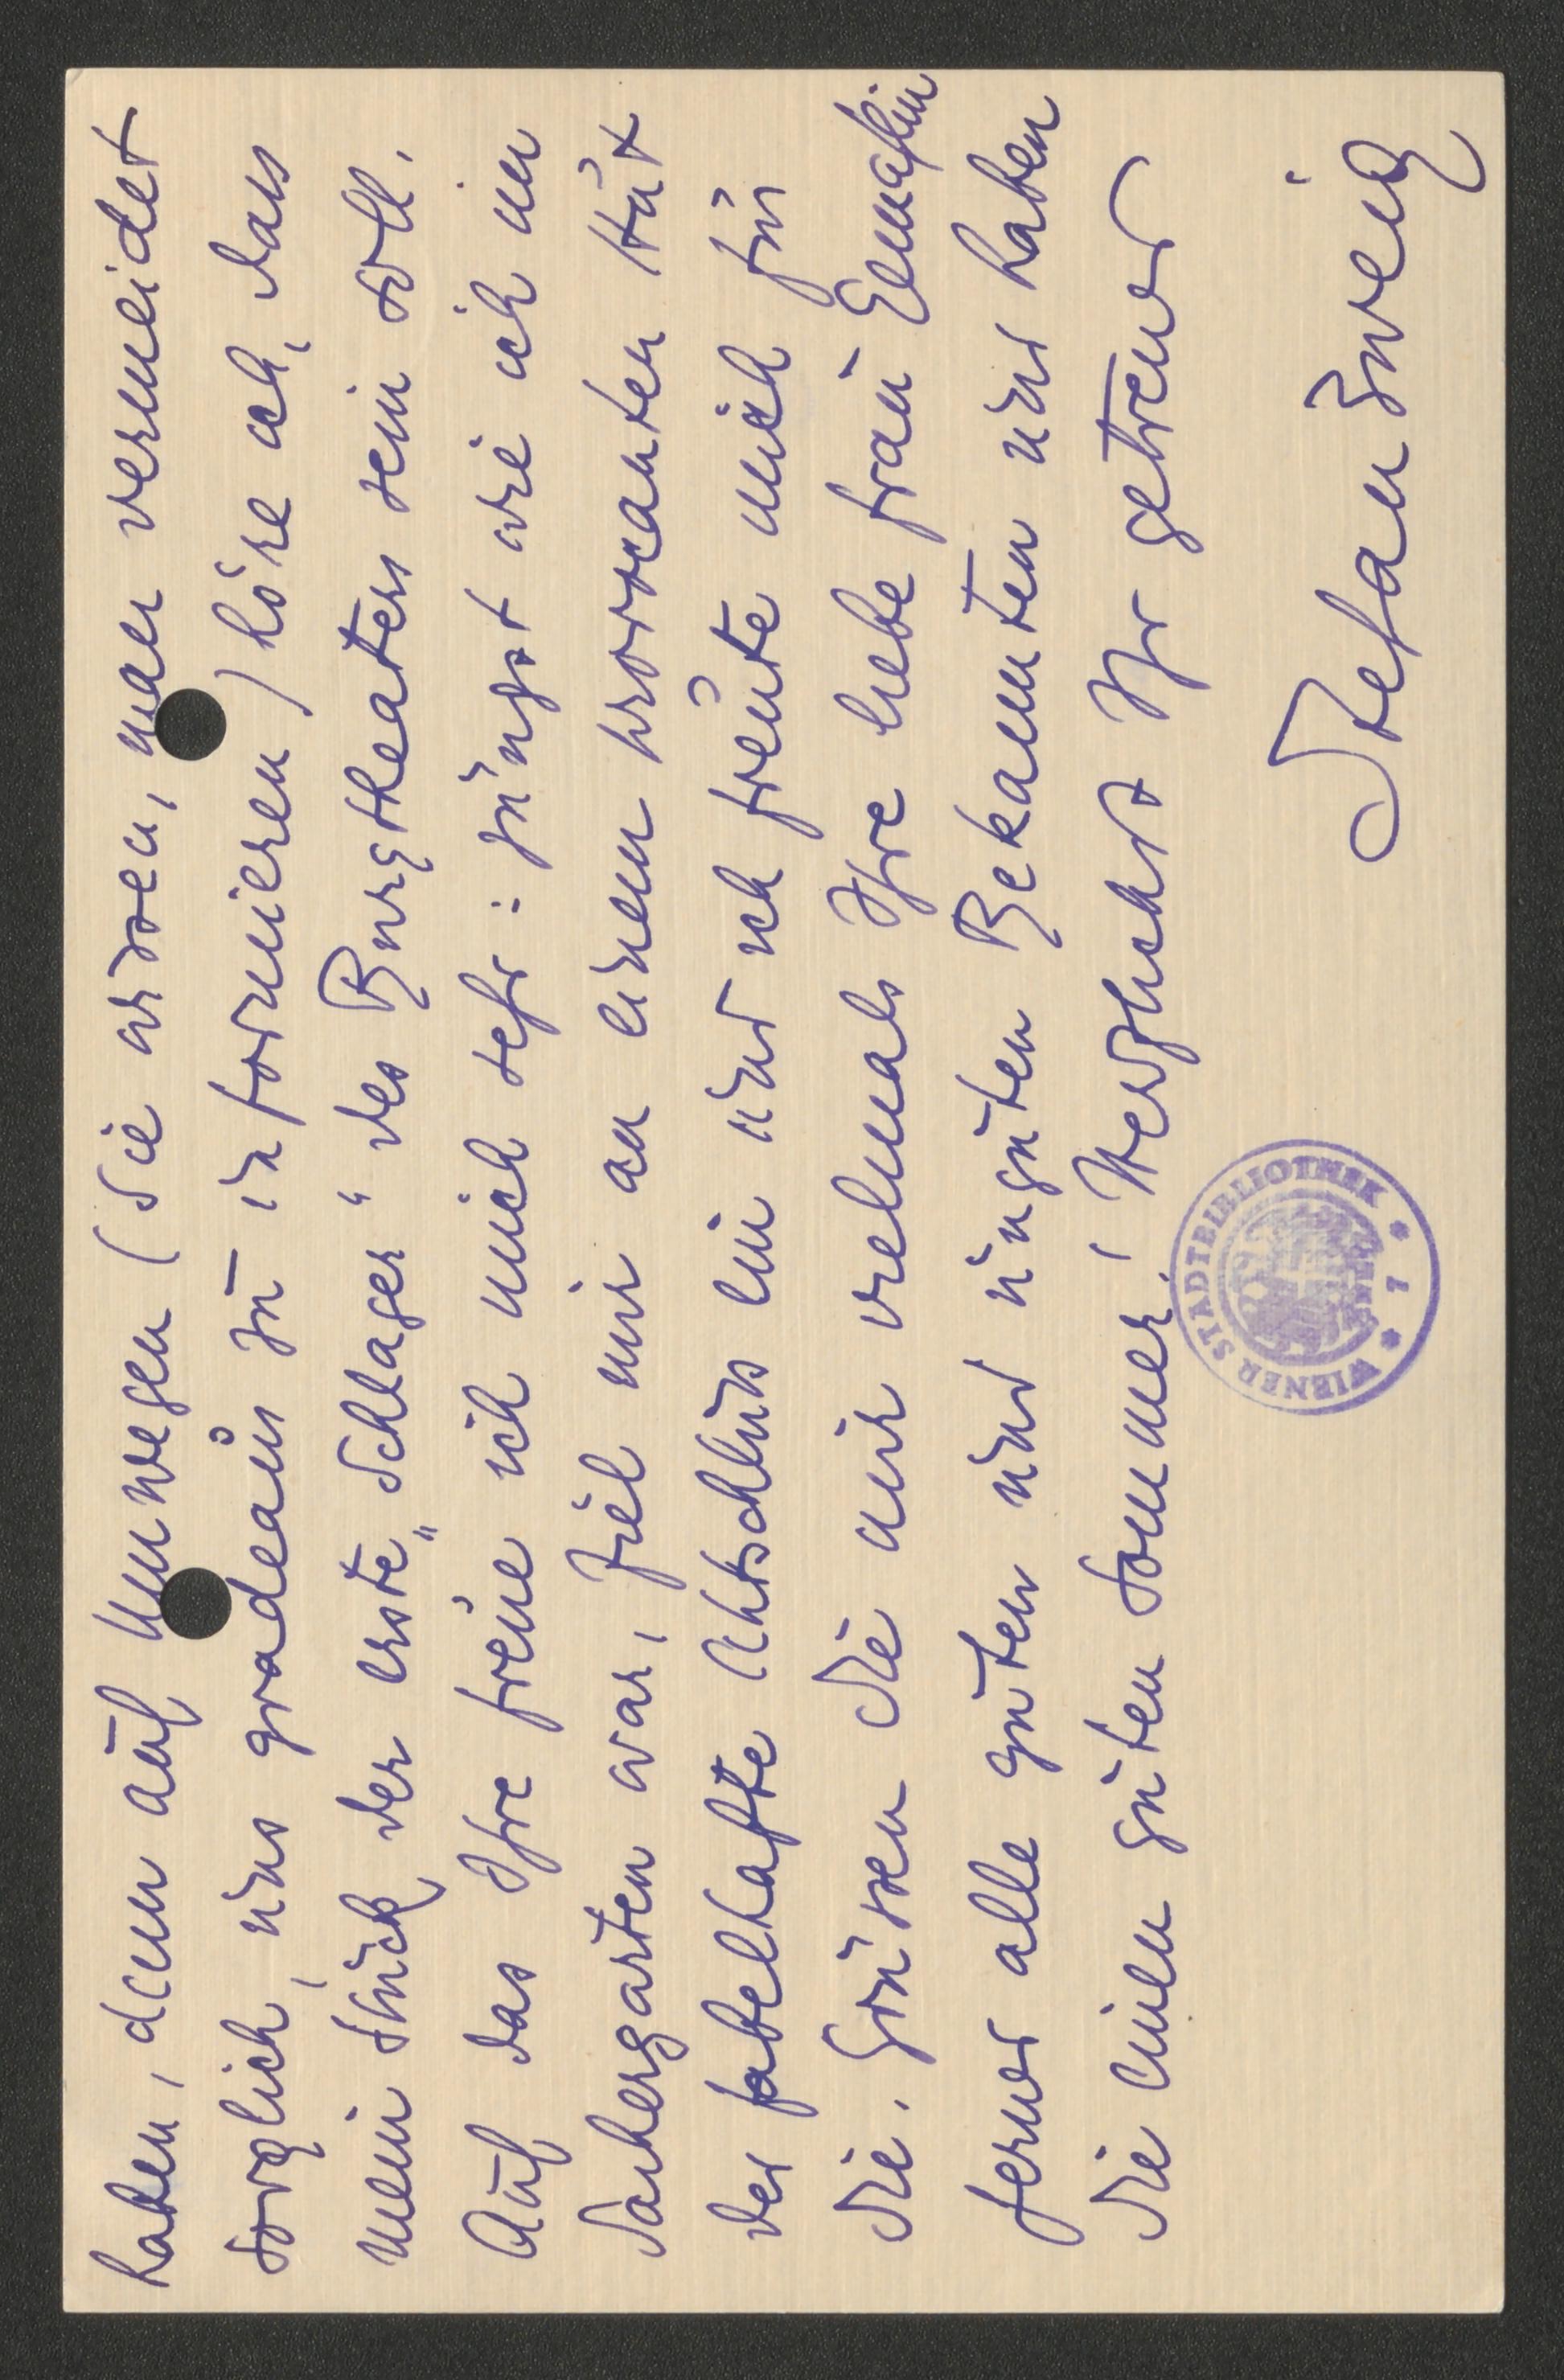 haben, denn auf Umwegen (Sie wissen, man vermeidet
sorglich, uns gradeaus zu informieren) höre ich, dass
mein Stück der erste „Schlager“ des Burgtheaters sein soll.
Auf das Ihre freue ich mich sehr: jüngst wie ich im
Sachergarten war, fiel mir an einem
der fabelhafte Actschluss ein und ich freute mich für
Sie. Grüssen Sie mir vielmals Ihre liebe Frau Gemahlin
ferner alle guten und unguten Bekannten und haben
Sie einen guten Sommer! Herzlichst Ihr getreuer
Stefan Zweig
WIENER STADTBIBLIOTHEK